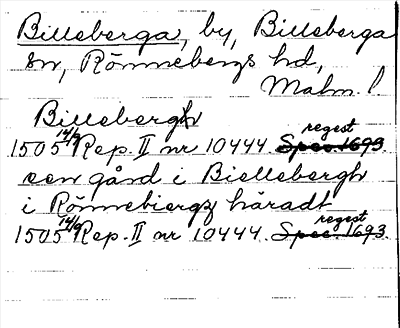 Billeberga, by, Billeberga
sn, Rönnebergs hd,
Malm. l.
Billebergh
1505 14/9 Rep. II nr 10444. Spec 1693 regest
een gård i Biellebergh
i Rönnebiergz häradt
1505 14/9 Rep. II nr 10444. Spec 1693. regest